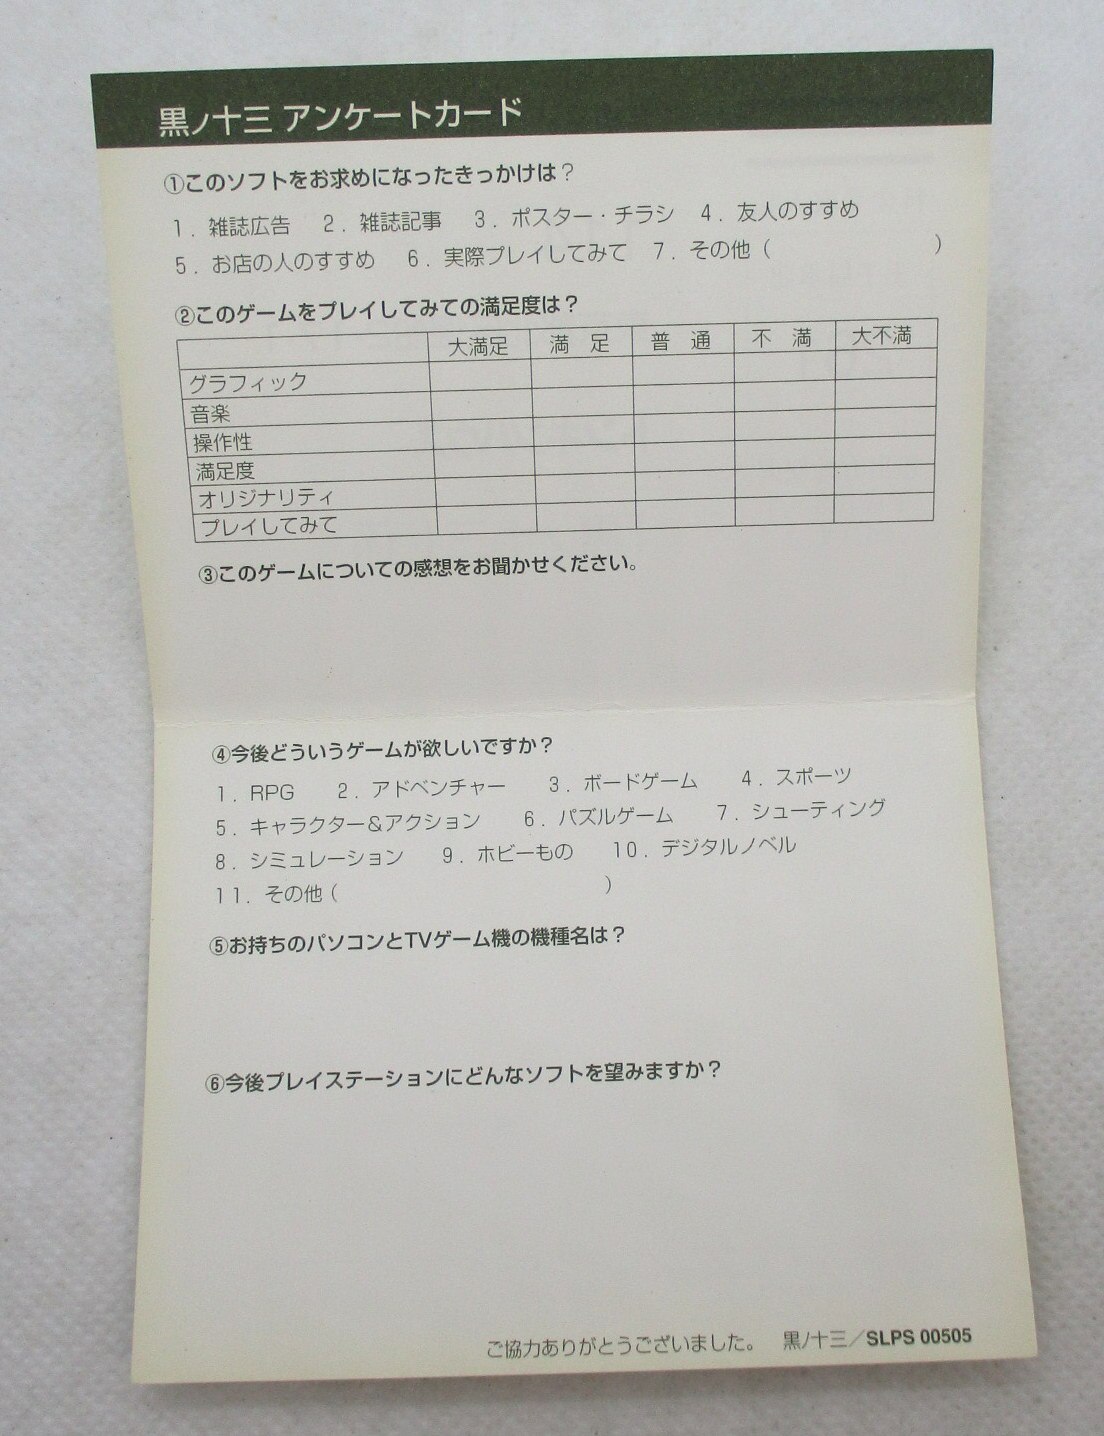 黒ノ十三 アンケートカード
①このソフトをお求めになったきっかけは？
1．雑誌広告　2．雑誌記事　3．ポスター・チラシ　4．友人のすすめ
5．お店の人のすすめ　6．実際プレイしてみて　7．その他（　　　　　　　　）
②このゲームをプレイしてみての満足度は？
大満足　満　足　普　通　不　満　大不満
グラフィック
音楽
操作性
満足度
オリジナリティ
プレイしてみて
③このゲームについての感想をお聞かせください。
④今後どういうゲームが欲しいですか？
1．RPG　2．アドベンチャー　3．ボードゲーム　4．スポーツ
5．キャラクター＆アクション　6．パズルゲーム　7．シューティング
8．シミュレーション　9．ホビーもの　10．デジタルノベル
11．その他（　　　　　　　　　　　　　）
⑤お持ちのパソコンとTVゲーム機の機種名は？
⑥今後プレイステーションにどんなソフトを望みますか？
ご協力ありがとうございました。　黒ノ十三／SLPS 00505